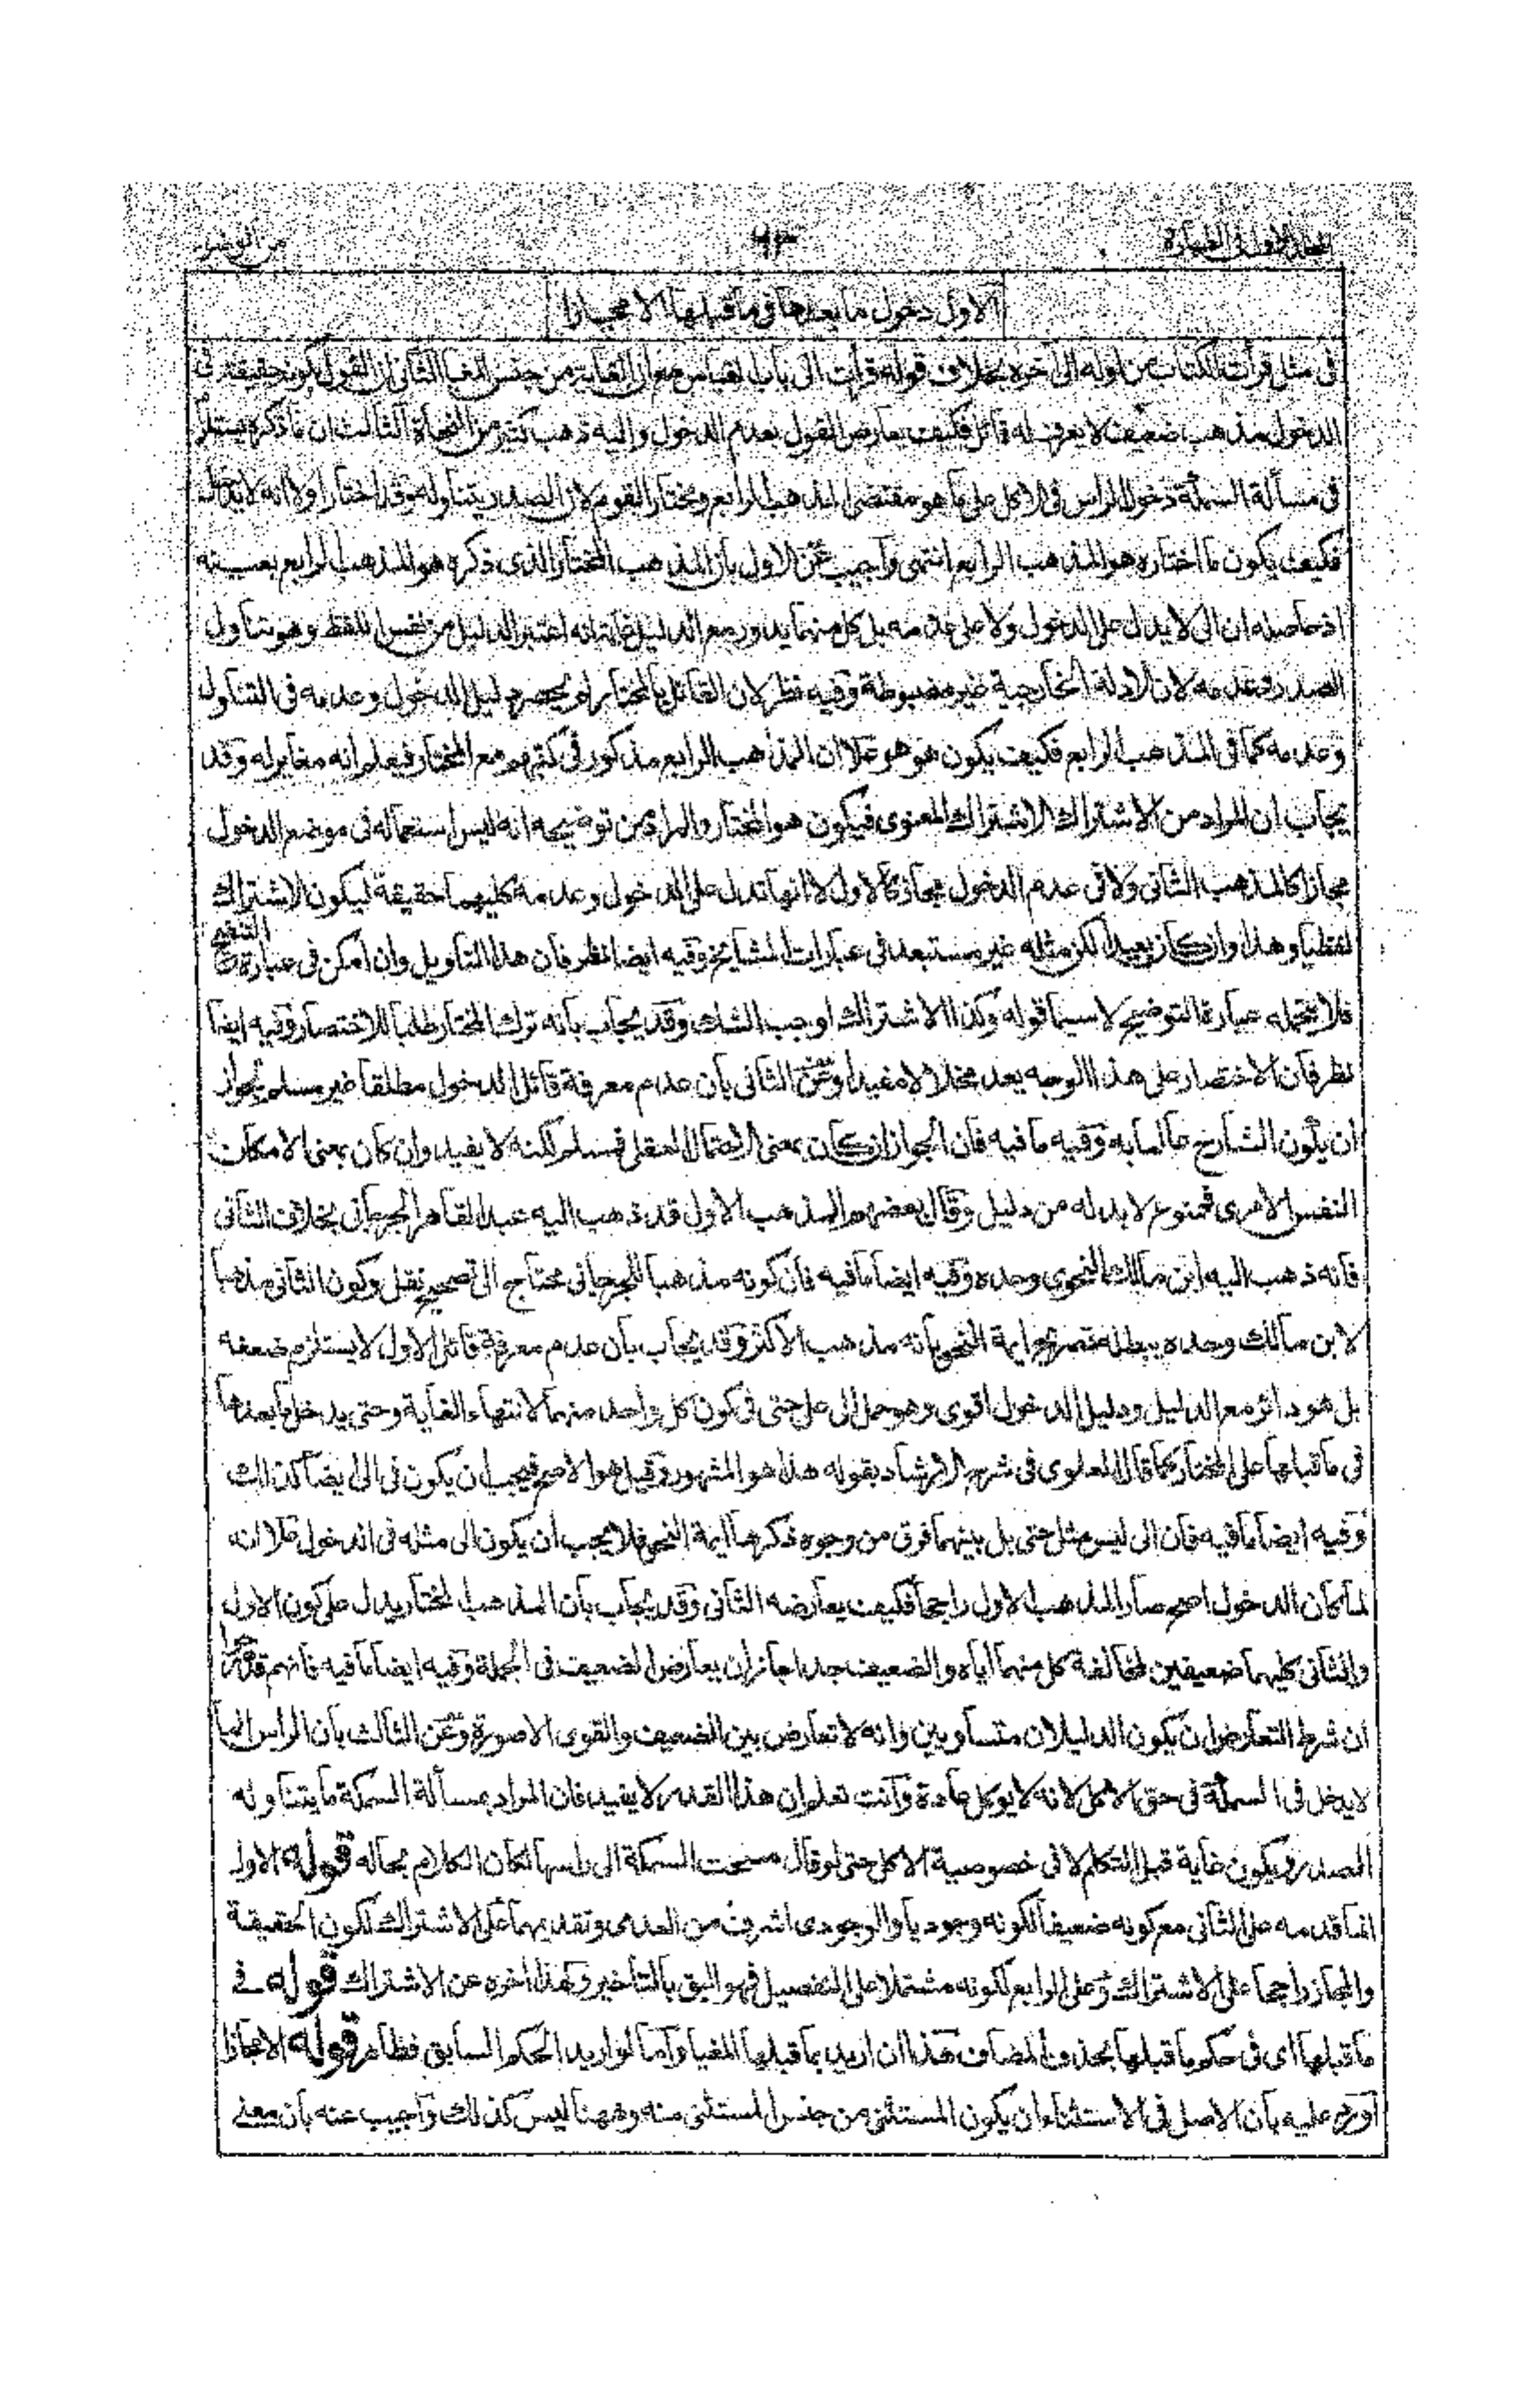 ٩٣
الاول دخول ما بعدها في ما قبلها الا مجازا
في مثل قرأت الكتاب من اوله الى آخره بخلاف قوله قرأت الى باب القياس مع ان الغاية من جنس المغيا الثاني ان القول بكونه حقيقة في
الدخول مذهب ضعيف لا يعرف له قائل فكيف يعارض القول بعدم الدخول واليه ذهب كثير من النحاة الثالث ان ما ذكره يستلزم
في مسألة السمكة دخول الراس في الاكل على ما هو مقتضى المذهب الرابع ومختار القوم لان الصدر يتناوله وقد اختار اولا انه لا يدخل
فكيف يكون ما اختاره هو المذهب الرابع انتهى وآجيب عن الاول بان المذهب المختار الذى ذكره هو المذهب الرابع بعينه
اذ حاصله ان الى لا يدل على الدخول ولا على عدمه بل كل منهما يدور مع الدليل غايته انه اعتبر الدليل من نفس اللفظ وهو تناول
الصدر وعدمه لان الادلة الخارجية غير مضبوطة وفيه نظر لان القائل بالمختار لم يحصر دليل الدخول وعدمه في التناول
وعدمه كما في المذهب الرابع فكيف يكون هو هو علا ان المذهب الرابع مذكور في كتبهم مع المختار فيعلم انه مغاير له وقد
يجاب ان المراد من الاشتراك الاشتراك المعنوى فيكون هو المختار والمراد من توضيحه انه ليس استعماله في موضع الدخول
مجازا كالمذهب الثاني ولا في عدم الدخول مجاز كالاول لا انها تدل على الدخول وعدمه كليهما حقيقة ليكون الاشتراك
لفظيا وهذا وان كان بعيدا لكن مثله غير مستبعد في عبارات المشايخ وفيه ايضا نظر فان هذا التاويل وان امكن في عبارة التنقيح
فلا يتحمله عبارة التوضيح لا سيما قوله وكذا الاشتراك اوجب الشك وقد يجاب بانه ترك المختار طلبا للاختصار وفيه ايضا
نظر فان الاختصار على هذا الوجه يعد مخلا لا مفيدا وعن الثاني بان عدم معرفة قائل الدخول مطلقا غير مسلم لجواز
ان يكون الشارح عالما به وفيه ما فيه فان الجواز ان كان بمعنى الاحتمال العقلى فمسلم لكنه لا يفيد وان كان بمعنى الامكان
النفس الامرى فممنوع لا بد له من دليل وقال بعضهم المذهب الاول قد ذهب اليه عبد القاهر الجرجاني بخلاف الثاني
فانه ذهب اليه ابن مالك النحوى وحده وفيه ايضا ما فيه فان كونه مذهبا للجرجاني محتاج الى تصحيح نقل وكون الثاني مذهبا
لابن مالك وحده يبطله تصريح ايمة النحو بانه مذهب الاكثر وقد يجاب بان عدم معرفة قائل الاول لا يستلزم ضعفه
بل هو دائر مع الدليل ودليل الدخول اقوى وهو حمل الى على حتى في كون كل واحد منهما لانتهاء الغاية وحتى يدخل ما بعدها
في ما قبلها على المختار كما قال العلوى في شرح الارشاد بقوله هذا هو المشهور وقيل هو الاصح فيجب ان يكون في الى ايضا كذلك
وفيه ايضا ما فيه فان الى ليس مثل حتى بل بينهما فرق من وجوه ذكرها ايمة النحو فلا يجب ان يكون الى مثله في الدخول علا انه
لما كان الدخول اصح صار المذهب الاول راجحا فكيف يعارضه الثاني وقد يجاب بان المذهب المختار يدل على كون الاول
والثاني كليهما ضعيفين لمخالفة كل منهما اياه والضعيف جدا جاز ان يعارض الضعيف في الجملة وفيه ايضا ما فيه فانهم قد صرحوا
ان شرط التعارض ان يكون الدليلان متساويين وانه لا تعارض بين الضعيف والقوى الا صورة وعن الثالث بان الراس انما
لا يدخل في السمكة في حق الاكل لانه لا يوكل عادة وآنت تعلم ان هذا القدر لا يفيد فان المراد بمسألة السمكة ما يتناوله
الصدر ويكون غاية قبل التكلم لا في خصوصية الاكل حتى لو قال مسحت السمكة الى راسها لكان الكلام بحاله قوله الاول
انما قدمه على الثاني مع كونه ضعيفا لكونه وجوديا والوجودى اشرف من العدمى وتقديمهما على الاشتراك لكون الحقيقة
والمجاز راجحا على الاشتراك وعلى الرابع لكونه مشتملا على التفصيل فهو اليق بالتاخير ولهذا اخره عن الاشتراك قوله في
ما قبلها اى في حكم ما قبلها بحذف المضاف هذا ان اريد بما قبلها المغيا وآما لو اريد الحكم السابق فظاهر قوله الا مجازا
آورد عليه بان الاصل في الاستثناء ان يكون المستثنى من جنس المستثنى منه وههنا ليس كذلك وآجيب عنه بان معنى